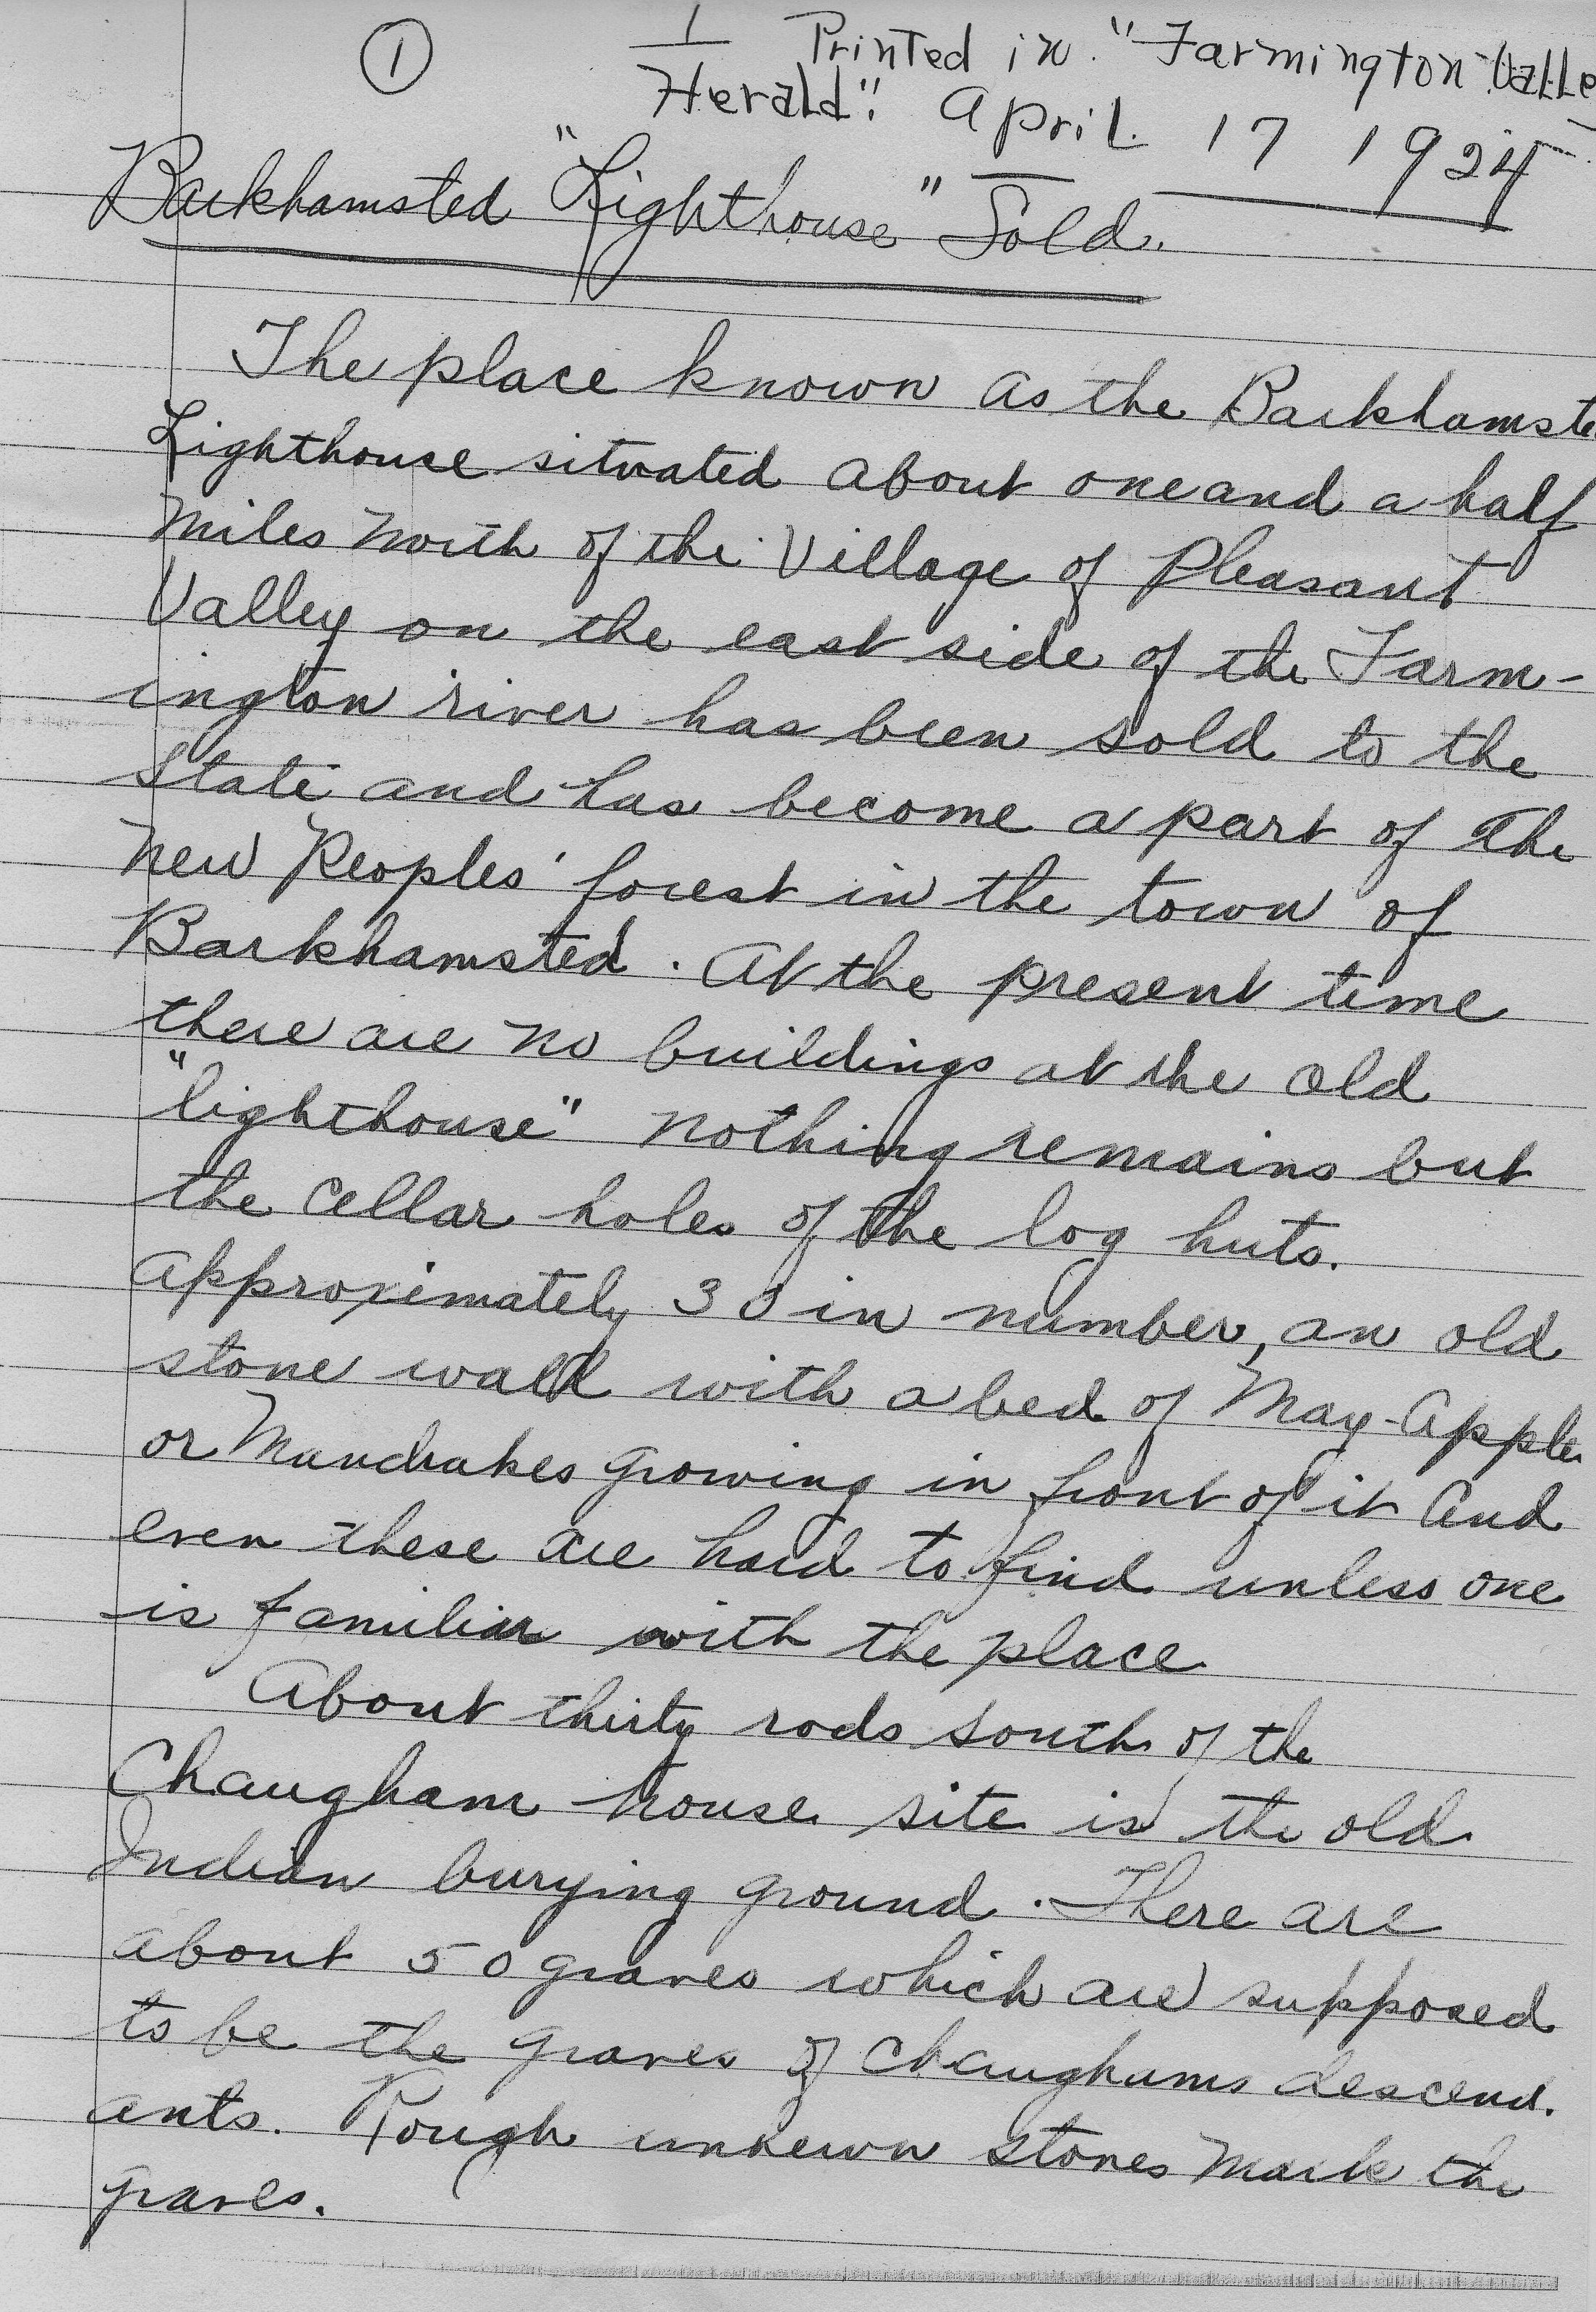 ① 1 Printed in "Farmington Valle
Herald". April 17 1924
Barkhamsted "Lighthouse" Sold.
The place known as the Barkhamste
Lighthouse situated about one and a half
miles north of the Village of Pleasant
Valley on the east side of the Farm-
ington river has been sold to the
State and has become a part of The
new Peoples' forest in the town of
Barkhamsted. At the present time
there are no buildings at the old
"lighthouse" nothing remains but
the cellar holes of the log huts.
approximately 30 in number, an old
stone wall with a bed of May-Apples
or Mandrakes growing in front of it and
even these are hard to find unless one
is familiar with the place
About thirty rods south of the
Chaugham house site is the old
Indian burying ground. There are
about 50 graves which are supposed
to be the graves of Chaughams descend.
ants. Rough unhewn stones mark the
graves.